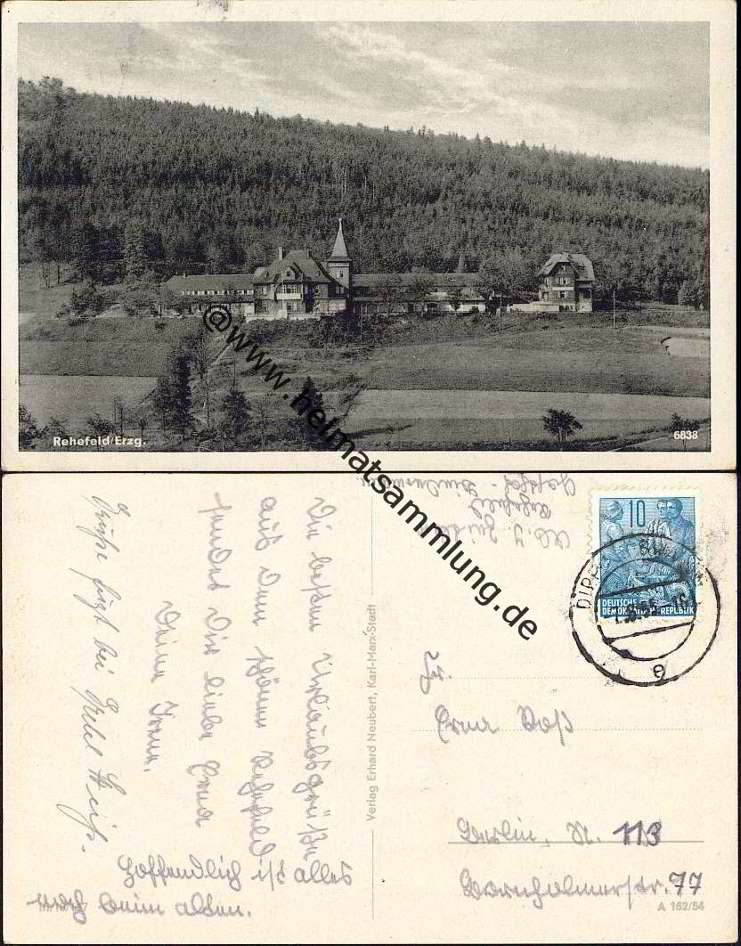 Rehefeld/Erzg.
6838
@www.heimatsammlung.de
Die besten Urlaubsgrüße
aus dem schönen Rehefeld
sendet Dir liebe Erna
Deine Irene.
Grüße fügt bei
Hoffendlich ist alles
noch beim alten.
Verlag Erhard Neubert, Karl-Marx-Stadt
Rehefeld
10
DEUTSCHE
DEMOKRATISCHE REPUBLIK
Fr.
Erna Voß
Berlin, N. 113
Bornholmerstr. 77
A 162/54